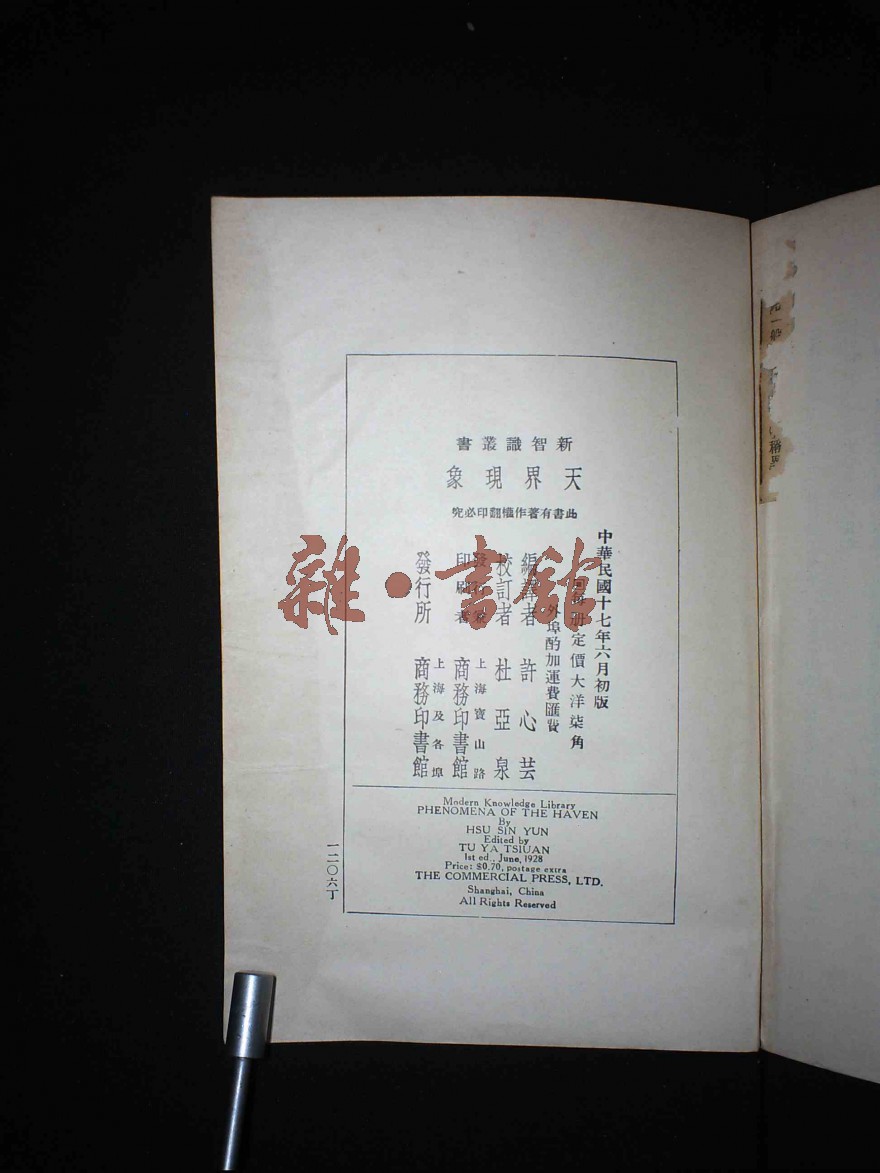 新智識叢書
天界現象
此書有著作權翻印必究
中華民國十七年六月初版
每册定價大洋柒角
外埠酌加運費匯費
編譯者 許心芸
校訂者 杜亞泉
發行兼
印刷者
上海寶山路
商務印書館
發行所
上海及各埠
商務印書館
Modern Knowledge Library
PHENOMENA OF THE HAVEN
By
HSU SIN YUN
Edited by
TU YA TSIUAN
1st ed., June, 1928
Price: $0.70, postage extra
THE COMMERCIAL PRESS, LTD.
Shanghai, China
All Rights Reserved
一二〇六丁
雜·書館